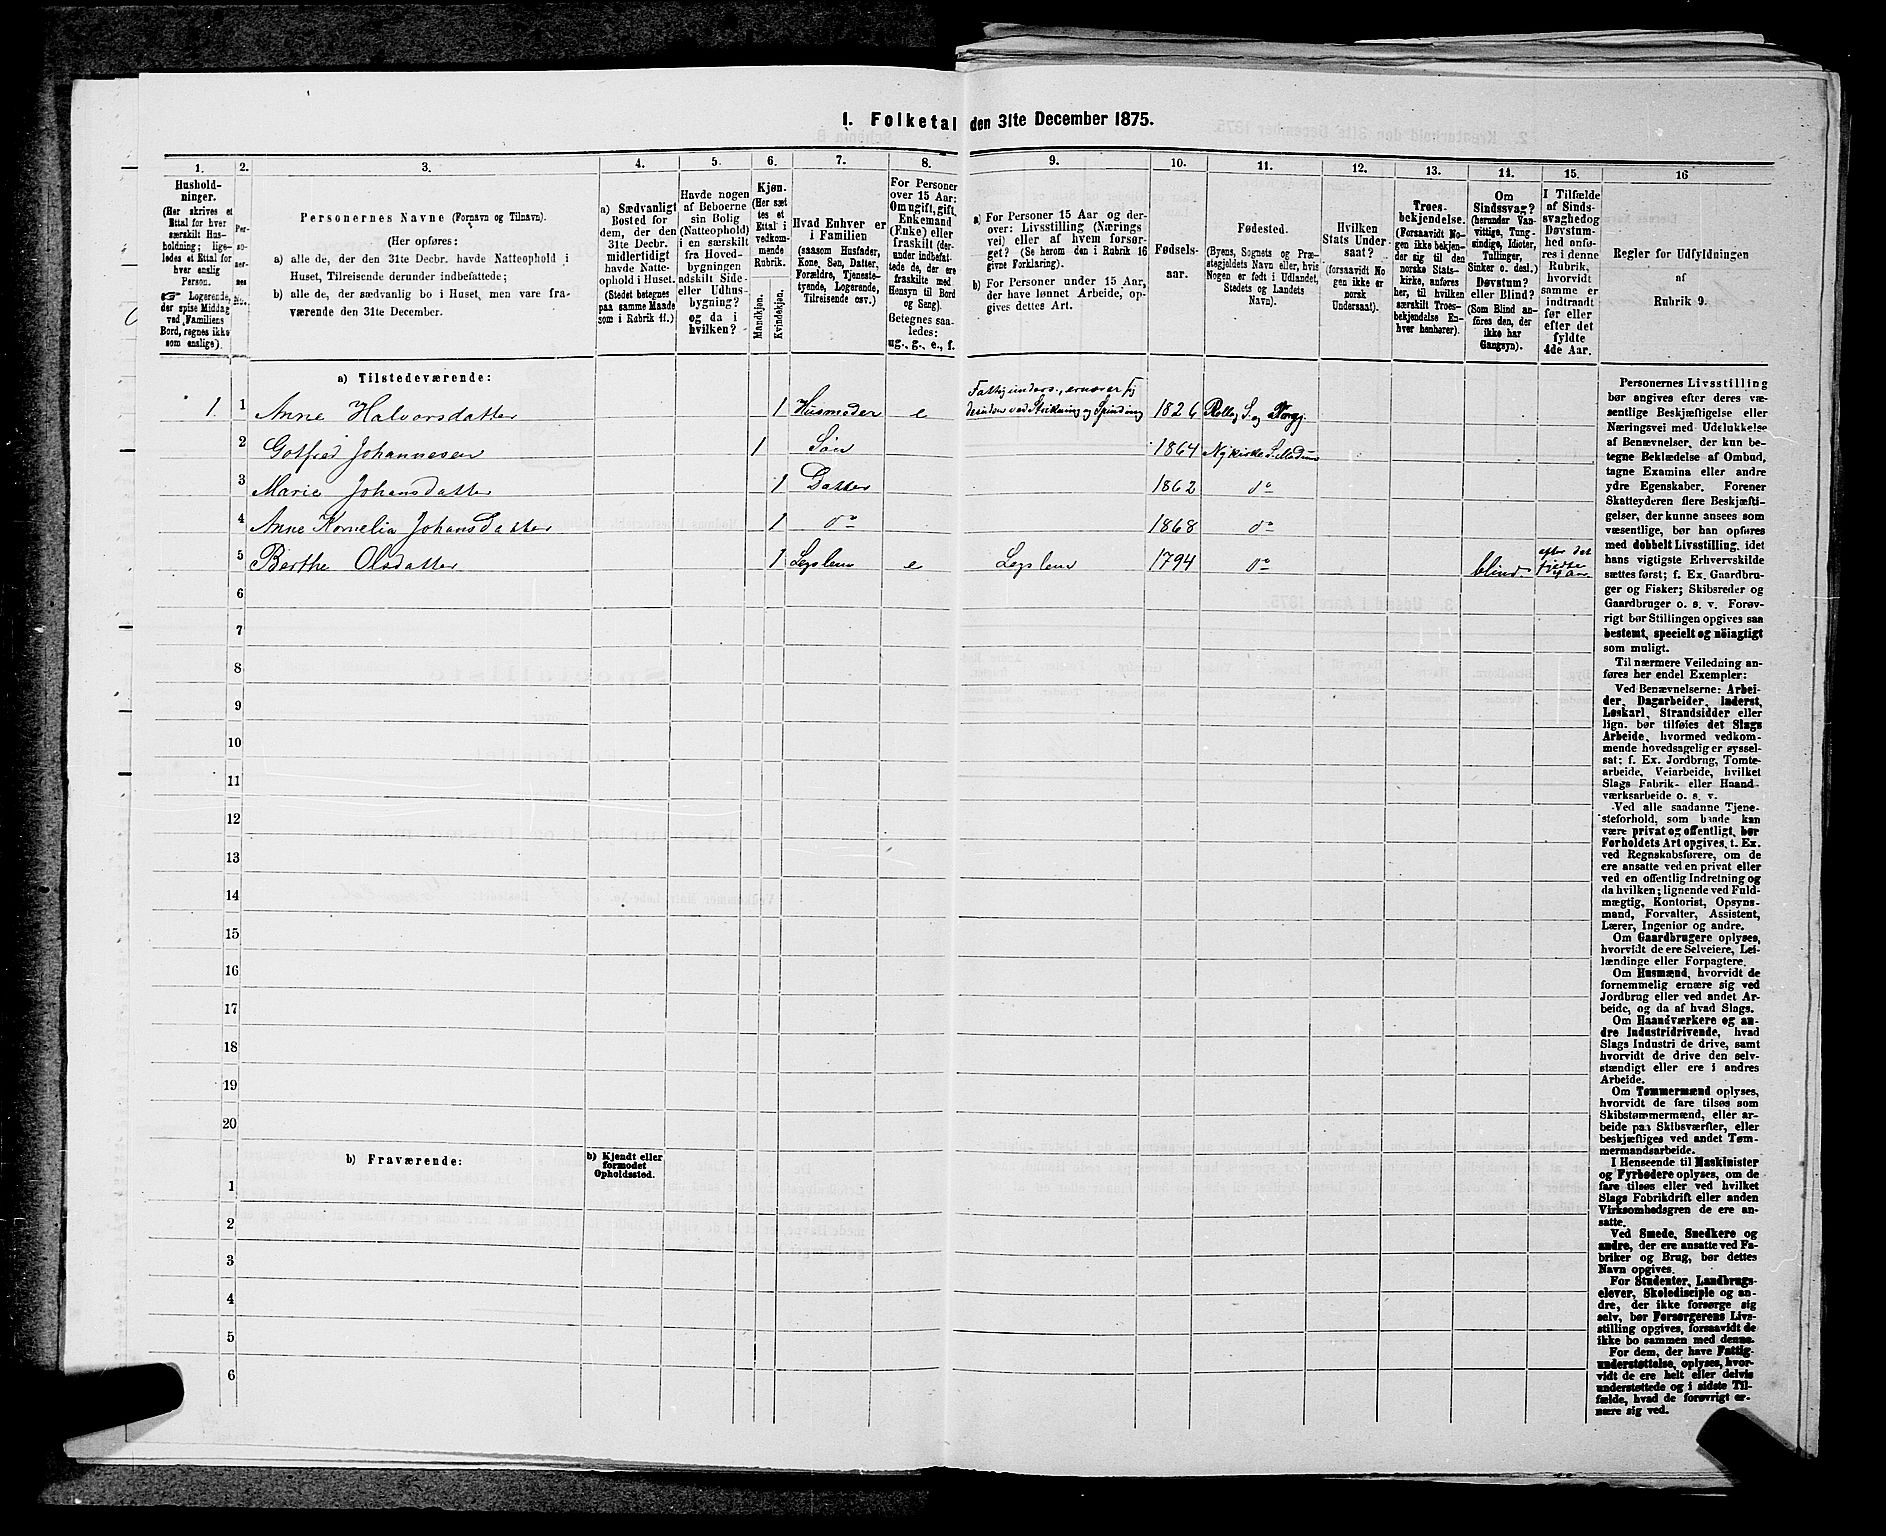 1. Folketal den 31te December 1875.
1. 2. 3. 4. 5. 6. 7. 8. 9. 10. 11. 12. 13. 14. 15. 16
Hushold-
ninger.
(Her skrives et
Ettal for hver
særskilt Hus-
holdning; lige-
ledes et Ettal for
hver enslig
Person.
☞ Logerende,
der spise Middag
ved Familiens
Bord, regnes ikke
som enslige).
Per-
so-
ner-
nes
No.
Personernes Navne (Fornavn og Tilnavn).
(Her opføres:
a) alle de, der den 31te Decbr. havde Natteophold i
Huset, Tilreisende derunder indbefattede;
b) alle de, der sædvanlig bo i Huset, men vare fra-
værende den 31te December.
a) Sædvanligt
Bosted for
dem, der den
31te Decbr.
midlertidigt
havde Natte-
ophold i Huset.
(Stedet betegnes
paa samme Maade
som i Rubrik 11.)
Havde nogen
af Beboerne
sin Bolig
(Natteophold)
i en særskilt
fra Hoved-
bygningen
adskilt Side-
eller Udhus-
bygning?
og da i
hvilken?
Kjøn.
(Her sæt-
tes et
Ettal i
vedkom-
mende
Rubrik.
Mandkjøn.
Kvindekjøn.
Hvad Enhver er
i Familien
(saasom Husfader,
Kone, Søn, Datter,
Forældre, Tjeneste-
tyende, Logerende,
Tilreisende osv.)
For Personer
over 15 Aar:
Om ugift, gift,
Enkemand
(Enke) eller
fraskilt (der-
under indbefat-
tede de, der ere
fraskilte med
Hensyn til Bord
og Seng).
Betegnes saa-
ledes:
ug., g., e., f.
a) For Personer 15 Aar og der-
over: Livsstilling (Nærings
vei) eller af hvem forsør-
get? (Se herom den i Rubrik 16
givne Forklaring).
b) For Personer under 15 Aar,
der have lønnet Arbeide, op-
gives dettes Art.
Fødsels-
aar.
Fødested.
(Byens, Sognets og Præ-
stegjeldets Navn eller, hvis
Nogen er født i Udlandet,
Stedets og Landets
Navn).
Hvilken
Stats Under-
saat?
(forsaavidt No
gen ikke er
norsk
Undersaat).
Troes-
bekjendelse.
(Forsaavidt No-
gen ikke bekjen-
der sig til den
norske Stats-
kirke, anføres
her, til hvilken
særskilt Troes-
bekjendelse En-
hver henhører).
Om
Sindssvag?
(herunder Van-
vittige, Tung-
sindige, Idioter,
Tullinger,
Sinker o. desl.)
Døvstum?
eller Blind?
(Som Blind an-
føres den, der
ikke har
Gangsyn).
I Tilfælde
af Sinds-
svaghed og
Døvstum-
hed anfø-
res i denne
Rubrik,
hvorvidt
samme er
indtraadt
før eller
efter det
fyldte
4de Aar.
Regler for Udfyldningen
af
Rubrik 9.
a) Tilstedeværende:
1 1 Anne Halvorsdatter 1 Husmoder e Fattigunders., ernærer sig desuden ved Strikning og Spinding 1826
2 Gotfred Johannesen 1 Søn 1864 Nykirke S. Modum
3 Marie Johansdatter 1 Datter 1862 do
4 Anne Kornelia Johansdatter 1 do 1868 do
5 Berthe Olsdatter 1 Legslem e Legslem 1794 do blind. efter det fjerde Aar
6
7
8
9
10
11
12
13
14
15
16
17
18
19
20
b) Fraværende:
b) Kjendt eller
formodet
Opholdssted.
1
2
3
4
5
6
Personernes Livsstilling
bør angives efter deres væ-
sentlige Beskjæftigelse eller
Næringsvei med Udelukkelse
af Benævnelser, der kun be-
tegne Beklædelse af Ombud,
tagne Examina eller andre
ydre Egenskaber. Forener
Skatteyderen flere Beskjæfti-
gelser, der kunne ansees som
væsentlige, bør han opføres
med dobbelt Livsstilling, idet
hans vigtigste Erhvervskilde
sættes først; f. Ex. Gaardbru-
ger og Fisker; Skibsreder og
Gaardbruger o. s. v. Forøv-
rigt bør Stillingen opgives saa
bestemt, specielt og nøiagtigt
som muligt.
Til nærmere Veiledning an-
føres her endel Exempler:
Ved Benævnelserne: Arbei-
der, Dagarbeider, Inderst,
Løskarl, Strandsidder eller
lign. bør tilføies det Slags
Arbeide, hvormed vedkom-
mende hovedsagelig er syssel-
sat; f. Ex. Jordbrug, Tomte-
arbeide, Veiarbeide, hvilket
Slags Fabrik- eller Haand-
værksarbeide o. s. v.
Ved alle saadanne Tjene-
steforhold, som baade kan
være privat og offentligt, bør
Forholdets Art opgives, t. Ex.
ved Regnskabsførere, om de
ere ansatte ved en privat eller
ved en offentlig Indretning og
da hvilken; lignende ved Fuld-
mægtig, Kontorist, Opsyns-
mand, Forvalter, Assistent,
Lærer, Ingeniør og andre.
Om Gaardbrugere oplyses,
hvorvidt de ere Selveiere, Lei-
lændinge eller Forpagtere.
Om Husmænd, hvorvidt de
fornemmelig ernære sig ved
Jordbrug eller ved andet Ar-
beide, og da af hvad Slags.
Om Haandværkere og an-
dre Industridrivende, hvad
Slags Industri de drive, samt
hvorvidt de drive den selv-
stændigt eller ere i andres
Arbeide.
Om Tømmermænd oplyses,
hvorvidt de fare tilsøs som
Skibstømmermænd, eller ar-
beide paa Skibsværfter, eller
beskjæftiges ved andet Tøm-
mermandsarbeide.
I Henseende til Maskinister
og Fyrbødere oplyses, om de
fare tilsøs eller ved hvilket
Slags Fabrikdrift eller anden
Virksomhedsgren de ere an-
satte.
Ved Smede, Snedkere og
andre, der ere ansatte ved Fa-
briker og Brug, bør dettes
Navn opgives.
For Studenter, Landbrugs-
elever, Skoledisciple og an-
dre, der ikke forsørge sig
selv, bør Forsørgerens Livs-
stilling opgives, forsaavidt de
ikke bo sammen med denne.
For dem, der have Fattig-
understøttelse, oplyses, hvor-
vidt de ere helt eller delvis
understøttede og i sidste Til-
fælde, hvad de forøvrigt er-
nære sig ved.